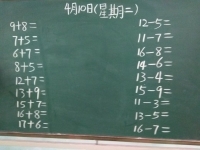 4月10日(星期二)
9+8=
7+5=
6+7=
8+5=
12+7=
13+9=
15+7=
16+8=
17+6=
12-5=
11-7=
16-8=
14-6=
13-4=
15-9=
11-3=
13-5=
16-7=